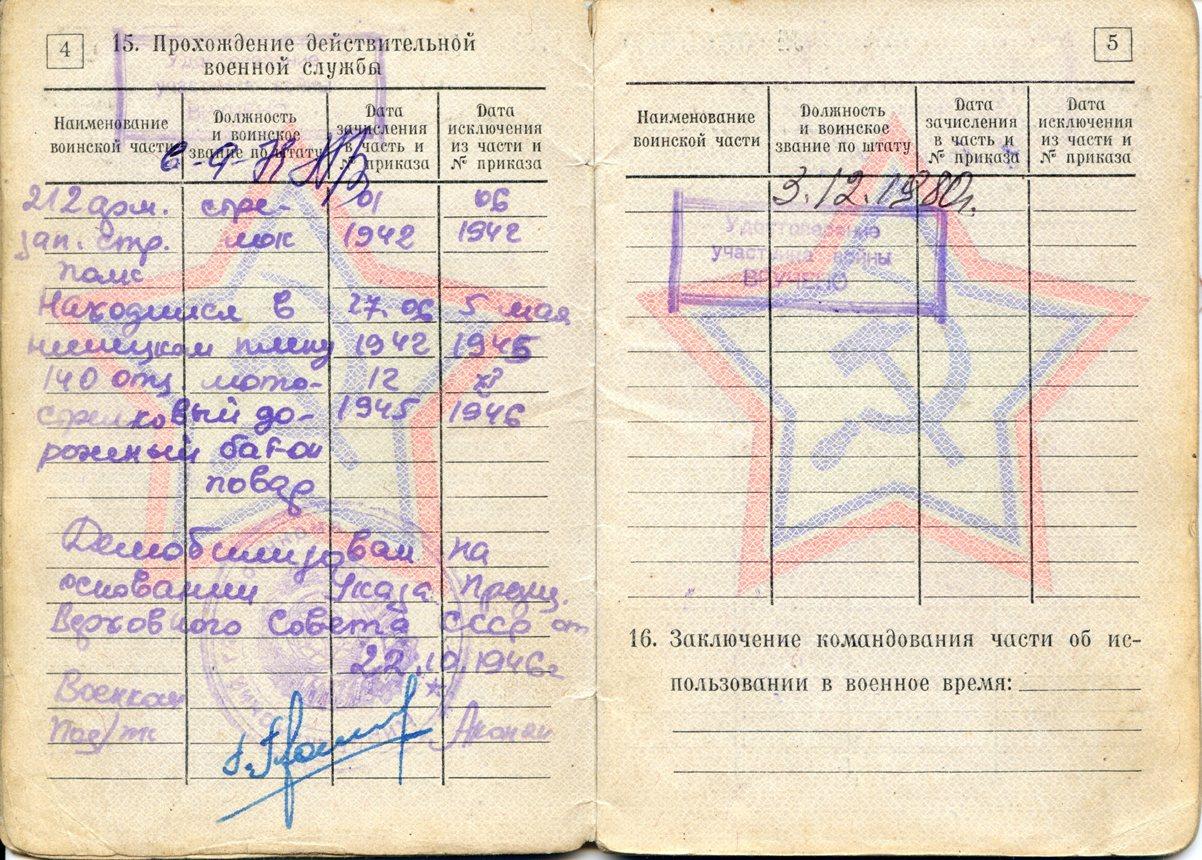 4
15. Прохождение действительной
военной службы
Наименование
воинской части
Должность
и воинское
звание по штату
Дата
зачисления
в часть и
№ приказа
Дата
исключения
из части и
№ приказа
212 арм. стре- 01 06
зап. стр. лок 1942 1942
полк
Находился в 27.06 5 мая
немецком плену 1942 1945
140 отд. мото- 12 XI
стрелковый до- 1945 1946
рожный бат-он
повар
Демобилизован на
основании Указа През.
Верховного Совета СССР от
22.10.1946г
Военком
5
Наименование
воинской части
Должность
и воинское
звание по штату
Дата
зачисления
в часть и
№ приказа
Дата
исключения
из части и
№ приказа
3.12.1980г.
Удостоверение
участника войны
ВРУЧЕНО
16. Заключение командования части об ис-
пользовании в военное время: